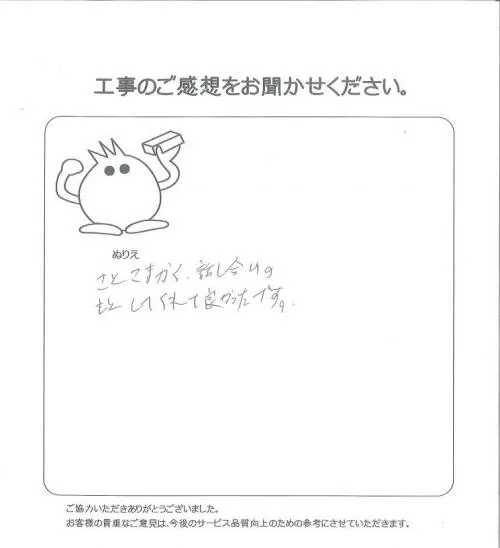 工事のご感想をお聞かせください。
ぬりえ
ことこまかく、話し合いの
もとしてくれて良かったです。
ご協力いただきありがとうございました。
お客様の貴重なご意見は、今後のサービス品質向上のための参考にさせていただきます。